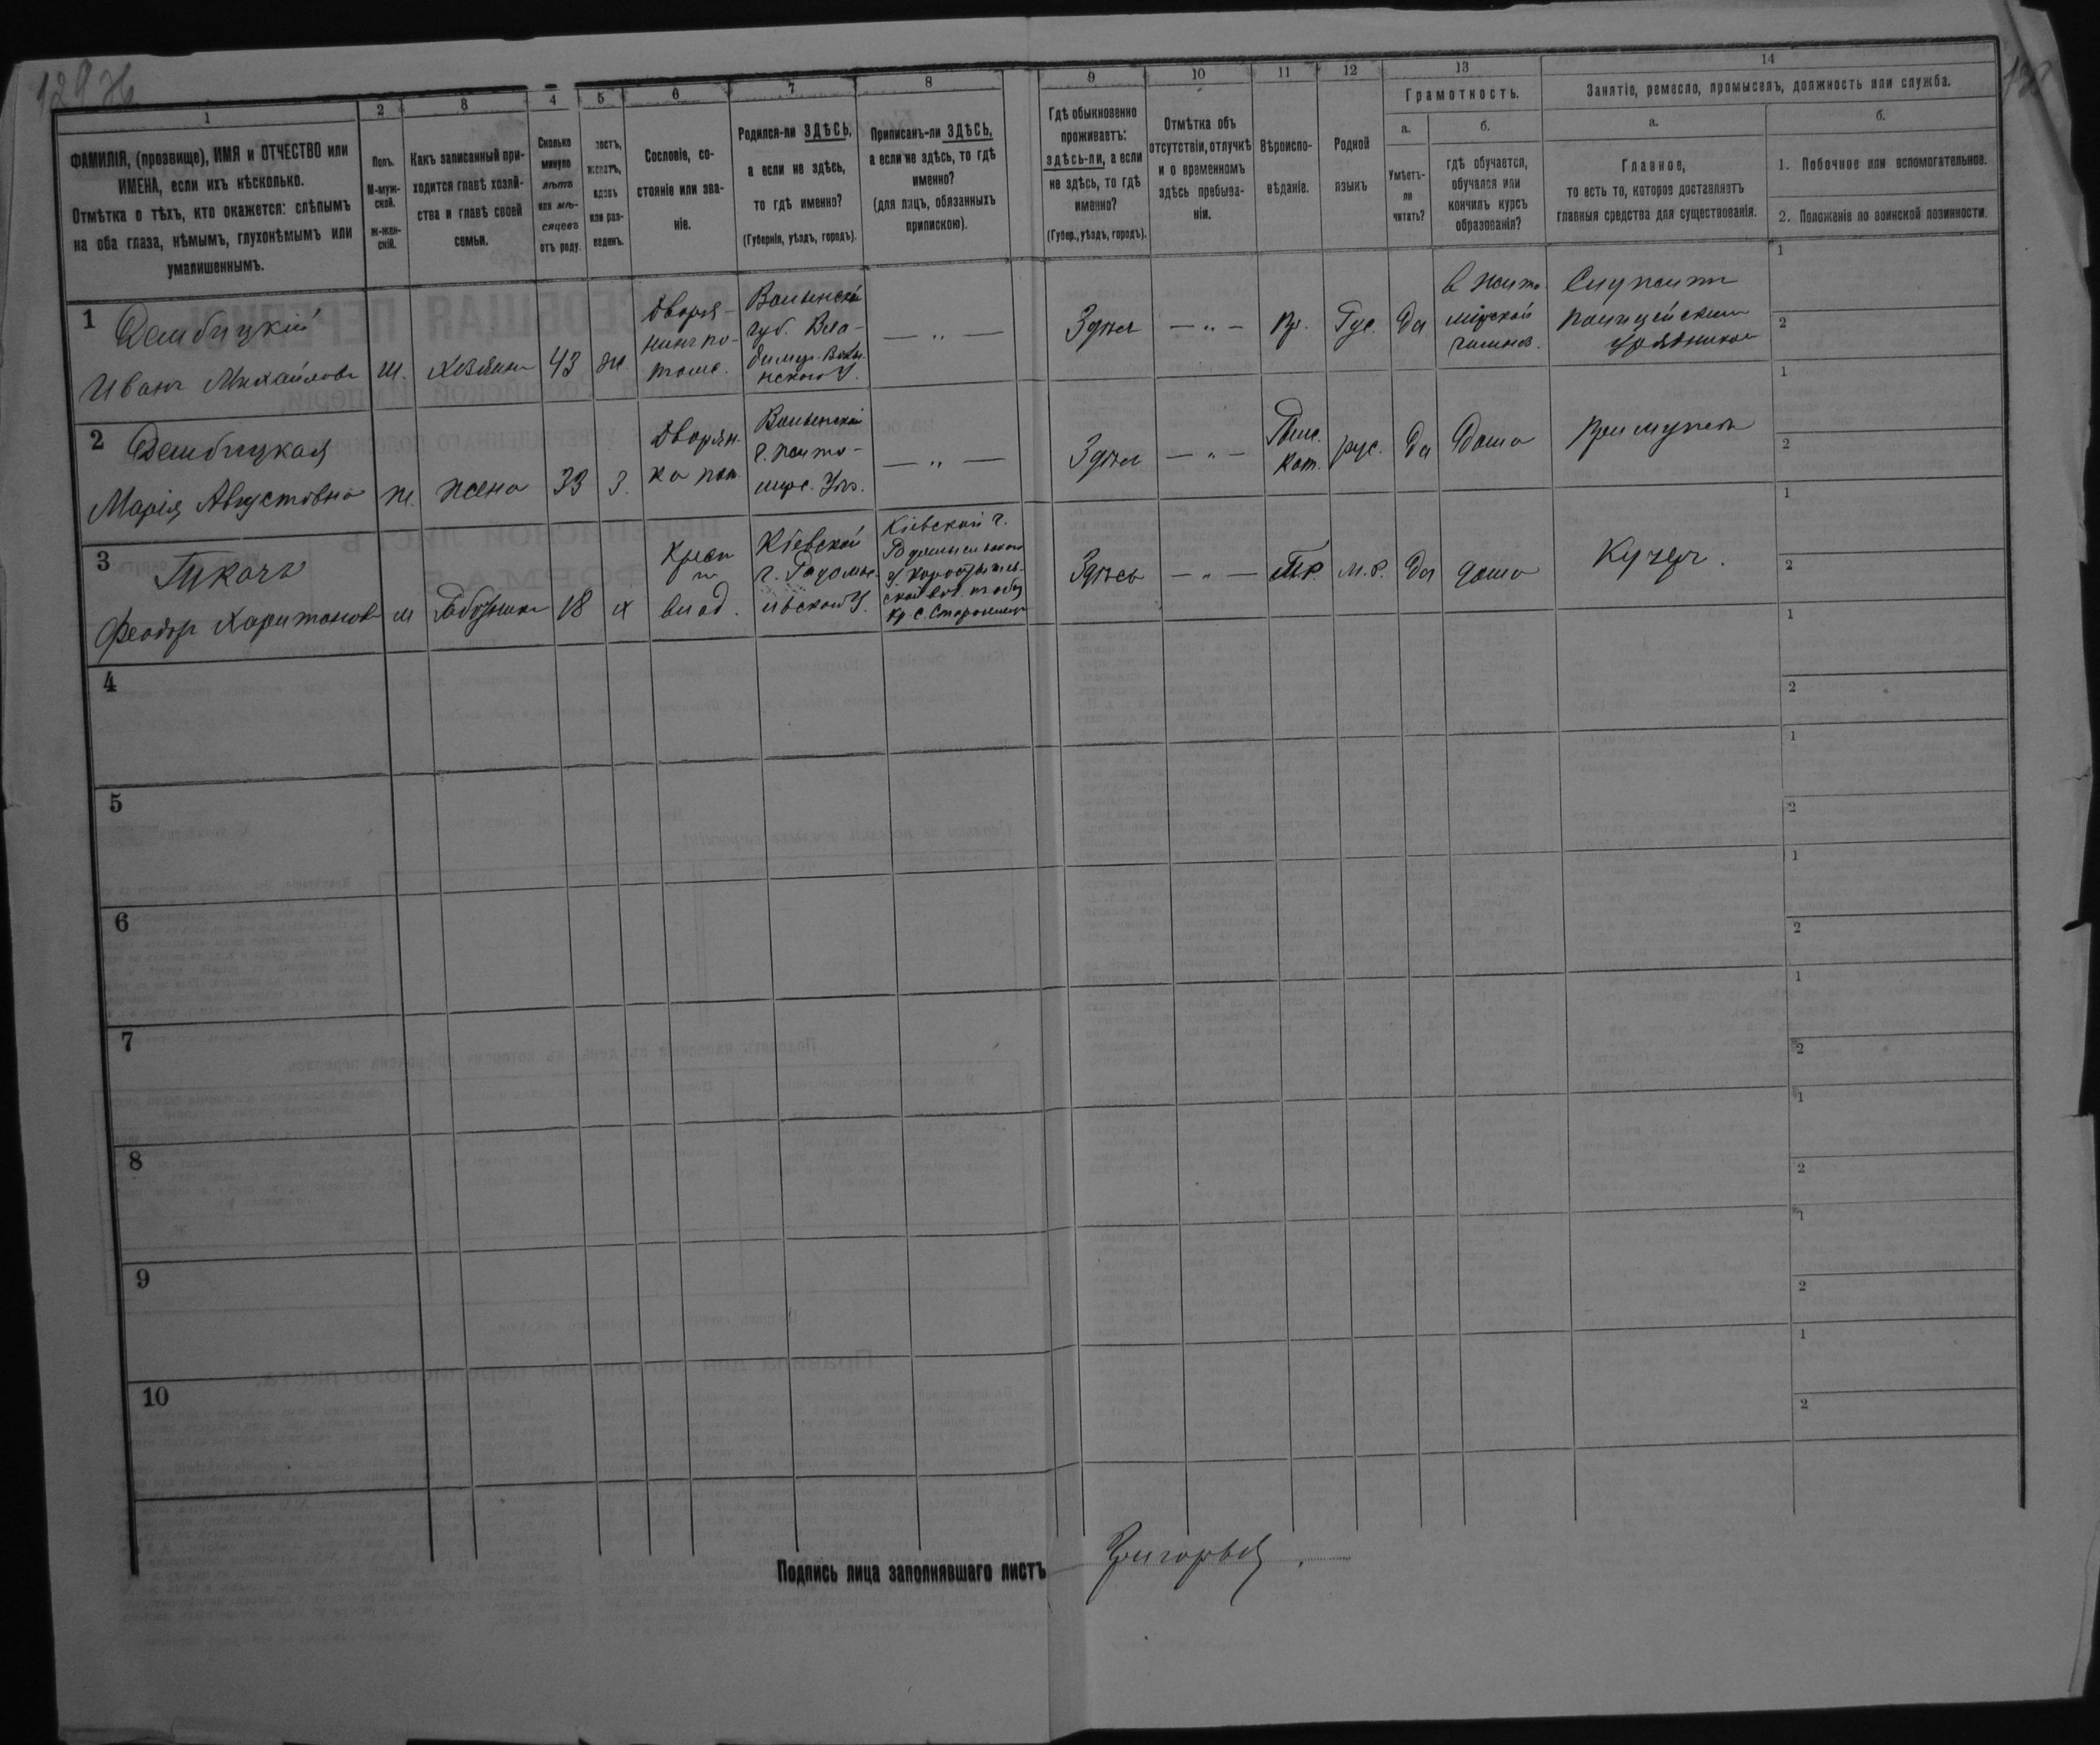 129
1
2
3
4
5
6
7
8
9
10
11
12
13
14
ФАМИЛІЯ, (прозвище), ИМЯ и ОТЧЕСТВО или
ИМЕНА, если ихъ нѣсколько.
Отмѣтка о тѣхъ, кто окажется: слѣпымъ
на оба глаза, нѣмымъ, глухонѣмымъ или
умалишеннымъ.
Полъ.
М-муж-
ской.
Ж-жен-
скій.
Какъ записанный при-
ходится главѣ хозяй-
ства и главѣ своей
семьи.
Сколько
минуло
лѣтъ
или мѣ-
сяцевъ
отъ роду.
лостъ,
женатъ,
вдовъ
или раз-
веденъ.
Сословіе, со-
стояніе или зва-
ніе.
Родился-ли ЗДѢСЬ,
а если не здѣсь,
то гдѣ именно?
(Губернія, уѣздъ, городъ).
Приписанъ-ли ЗДѢСЬ,
а если не здѣсь, то гдѣ
именно?
(для лицъ, обязанныхъ
припискою).
Гдѣ обыкновенно
проживаетъ:
здѣсь-ли, а если
не здѣсь, то гдѣ
именно?
(Губер., уѣздъ, городъ).
Отмѣтка объ
отсутствіи, отлучкѣ
и о временномъ
здѣсь пребыва-
ніи.
Вѣроиспо-
вѣданіе.
Родной
языкъ
Грамотность.
а.
Умѣетъ-
ли
читать?
б.
гдѣ обучается,
обучался или
кончилъ курсъ
образованія?
Занятіе, ремесло, промыселъ, должность или служба.
а.
Главное,
то есть то, которое доставляетъ
главныя средства для существованія.
б.
1. Побочное или вспомогательное.
2. Положеніе по воинской повинности.
1
Дембицкій
Иванъ Михайловъ
м.
хозяинъ
43
ж.
Дворя-
нинъ по-
том.
Волынской
губ. Вла-
димір-Волы-
нского У.
— " —
Здѣсь
— " —
Пр.
Рус.
Да
в Жито-
мірской
гимназ.
Служитъ
полицейскимъ
урядникомъ
1
2
2
Дембицкая
Марія Августовна
ж.
жена
33
з.
Дворян-
ка пот.
Волынской
г. Жито-
мирс. Уѣз.
— " —
Здѣсь
— " —
Рим.
Кат.
рус.
Да
Дома
При мужѣ
1
2
3
Ткачъ
Феодоръ Харитоновъ
м
Работникъ
18
х
Крест
из
влад.
Кіевской
г. Радомы-
сльскаго У.
Кіевской г.
Радомысльскаго
У. Коростышев-
ской вол.
Здѣсь
— " —
Пр.
М.Р.
Да
дома
Кучеръ.
1
2
4
1
2
5
1
2
6
1
2
7
1
2
8
1
2
9
1
2
10
1
2
Подпись лица заполнявшаго листъ
Григорьев